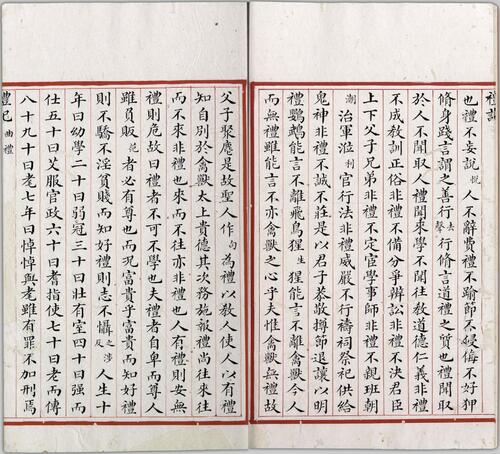 禮記
也禮不妄說悅人不辭費禮不踰節不侵侮不好狎
脩身踐言謂之善行去聲行脩言道禮之質也禮聞取
於人不聞取人禮聞來學不聞往教道德仁義非禮
不成教訓正俗非禮不備分爭辨訟非禮不決君臣
上下父子兄弟非禮不定宦學事師非禮不親班朝
潮治軍涖利官行法非禮威嚴不行禱祠祭祀供給
鬼神非禮不誠不莊是以君子恭敬撙節退讓以明
禮鸚鵡能言不離飛鳥猩生猩能言不離禽獸今人
而無禮雖能言不亦禽獸之心乎夫惟禽獸無禮故
父子聚麀是故聖人作句為禮以教人使人以有禮
知自別於禽獸太上貴德其次務施報禮尚往來往
而不來非禮也來而不往亦非禮也人有禮則安無
禮則危故曰禮者不可不學也夫禮者自卑而尊人
雖負販范者必有尊也而況富貴乎富貴而知好禮
則不驕不淫貧賤而知好禮則志不懾之涉反人生十
年曰幼學二十曰弱冠三十曰壯有室四十曰強而
仕五十曰艾服官政六十曰耆指使七十曰老而傳
八十九十曰耄七年曰悼悼與耄雖有罪不加刑焉
禮記 曲禮